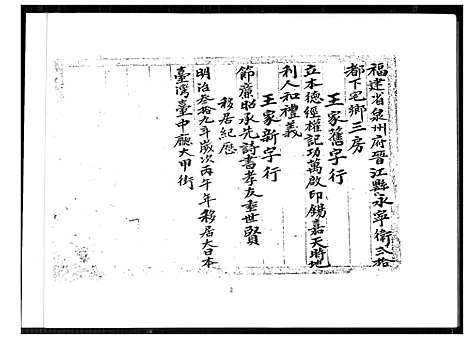 福建省泉州府晋江縣永寧衛弍拾
都下宅鄉三房
王家舊字行
立本德經權記功萬啟印錫嘉天時地
利人和禮義
王家新字行
節廉昭承先詩書孝友垂世賢
移居紀歷
明治叁拾九年歲次丙午年移居大日本
臺灣臺中廳大甲街
2